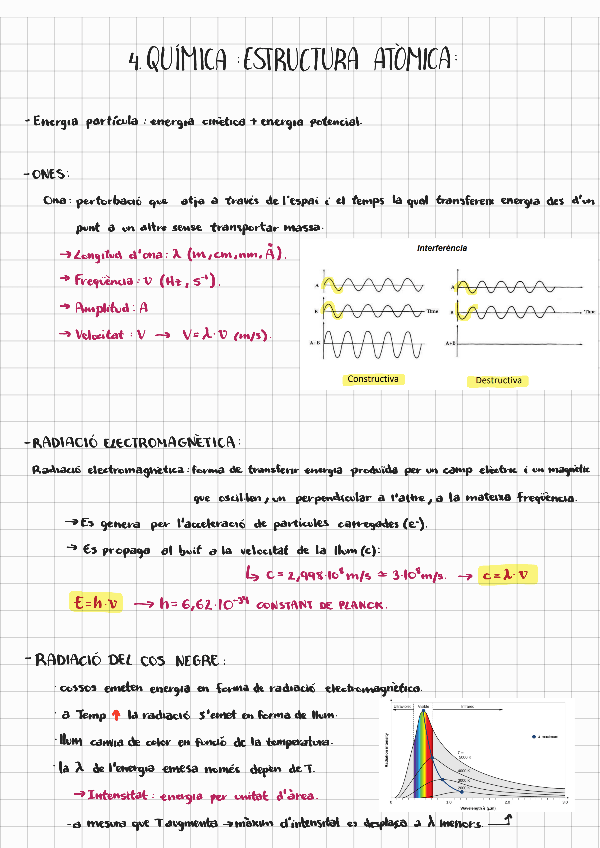 4. QUÍMICA : ESTRUCTURA ATÒMICA:
- Energia partícula : energia cinètica + energia potencial.
- ONES:
Ona: pertorbació que viatja a través de l'espai i el temps la qual transfereix energia des d'un
punt a un altre sense transportar massa.
→ Longitud d'ona: λ (m, cm, nm, Å).
→ Freqüència : ν (Hz, s⁻¹).
→ Amplitud : A
→ Velocitat : V → V = λ · ν (m/s).
Interferència
A
A
B
Time
B
Time
A+B
A+B
Constructiva
Destructiva
- RADIACIÓ ELECTROMAGNÈTICA:
Radiació electromagnètica : forma de transferir energia produïda per un camp elèctric i un magnètic
que oscil·len, un perpendicular a l'altre, a la mateixa freqüència.
→ Es genera per l'acceleració de partícules carregades (e⁻).
→ Es propaga al buit a la velocitat de la llum (c):
↳ C = 2,998·10⁸ m/s ≃ 3·10⁸ m/s. → c = λ · ν
E = h · ν → h = 6,62·10⁻³⁴ CONSTANT DE PLANCK.
- RADIACIÓ DEL COS NEGRE :
· cossos emeten energia en forma de radiació electromagnètica.
· a Temp ↑ la radiació s'emet en forma de llum.
· llum canvia de color en funció de la temperatura.
· la λ de l'energia emesa només depèn de T.
→ Intensitat : energia per unitat d'àrea.
- a mesura que T augmenta → màxim d'intensitat es desplaça a λ menors.
Ultraviolet
Visible
Infrared
Radiation intensity
T =
5000 K
4000 K
3000 K
0
1.0
2.0
3.0
Wavelength λ (μm)